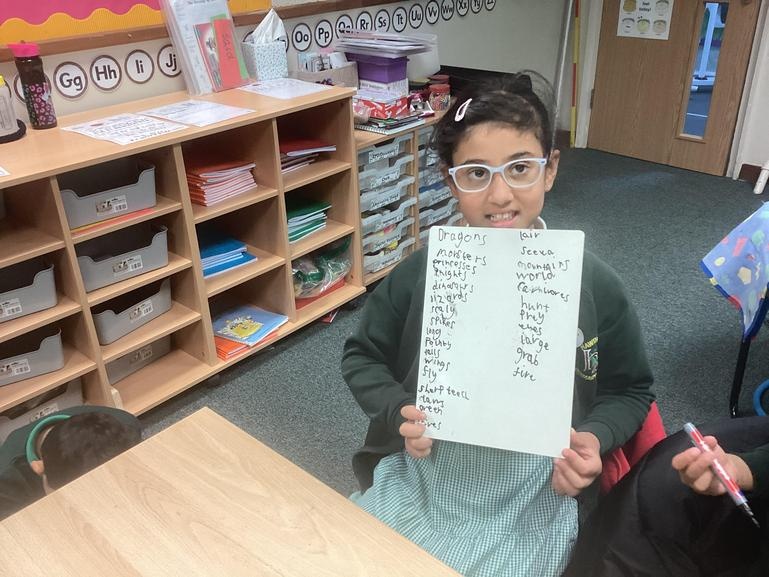 Oo Pp Qq Rr Ss Tt Uu Vv Ww Xx Yy Zz
Gg Hh Ii Jj
said
Dragons
monsters
princesses
knights
dinosaurs
lizards
scaly
spikes
long
pointy
tails
wings
fly
sharp teeth
green
lair
mountains
world
carnivores
hunt
prey
eyes
large
grab
fire